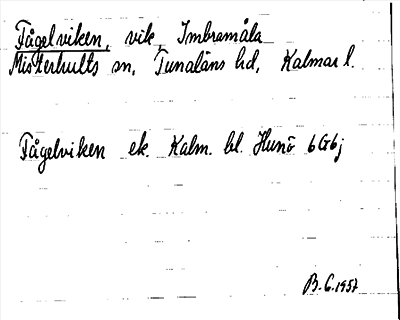 Fågelviken, vik, Imbramåla
Misterhults sn, Tunaläns hd, Kalmar l.
Fågelviken ek. Kalm. bl. Hunö 6G6j
B.C. 1957